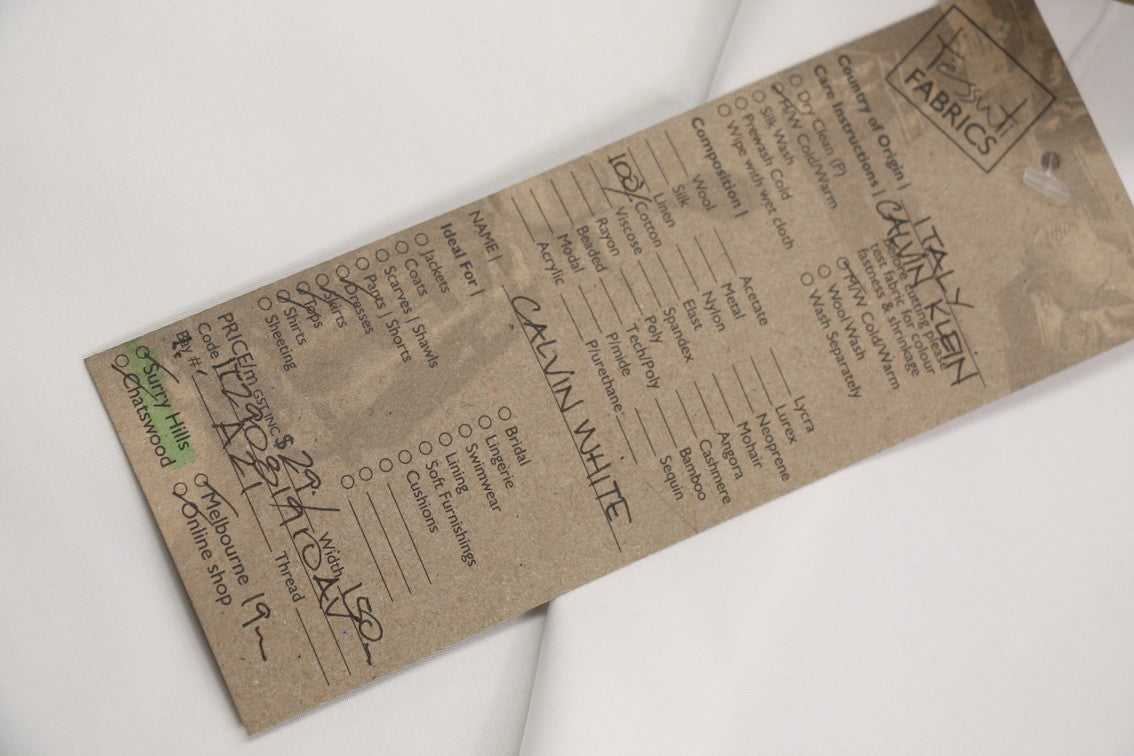 Tessuti
FABRICS
Country of Origin | ITALY
Care Instructions | CALVIN KLEIN
Dry Clean (P)
H/W Cold/Warm
Silk Wash
Prewash Cold
Wipe with wet cloth
Before cutting please
test fabric for colour
fastness & shrinkage
M/W Cold/Warm
Wool Wash
Wash Separately
Composition |
Wool
Silk
Linen
100% Cotton
Viscose
Rayon
Beaded
Modal
Acrylic
Acetate
Metal
Nylon
Elast
Spandex
Poly
Tech/Poly
P/mide
P/urethane
Lycra
Lurex
Neoprene
Mohair
Angora
Cashmere
Bamboo
Sequin
NAME | CALVIN WHITE
Ideal For |
Jackets
Coats
Scarves | Shawls
Pants | Shorts
Dresses
Skirts
Tops
Shirts
Sheeting
Bridal
Lingerie
Swimwear
Lining
Soft Furnishings
Cushions
PRICE/m GST INC $ 29./ Width 150m
Code
Bay # Thread
Surry Hills
Chatswood
Melbourne 19m
Online shop